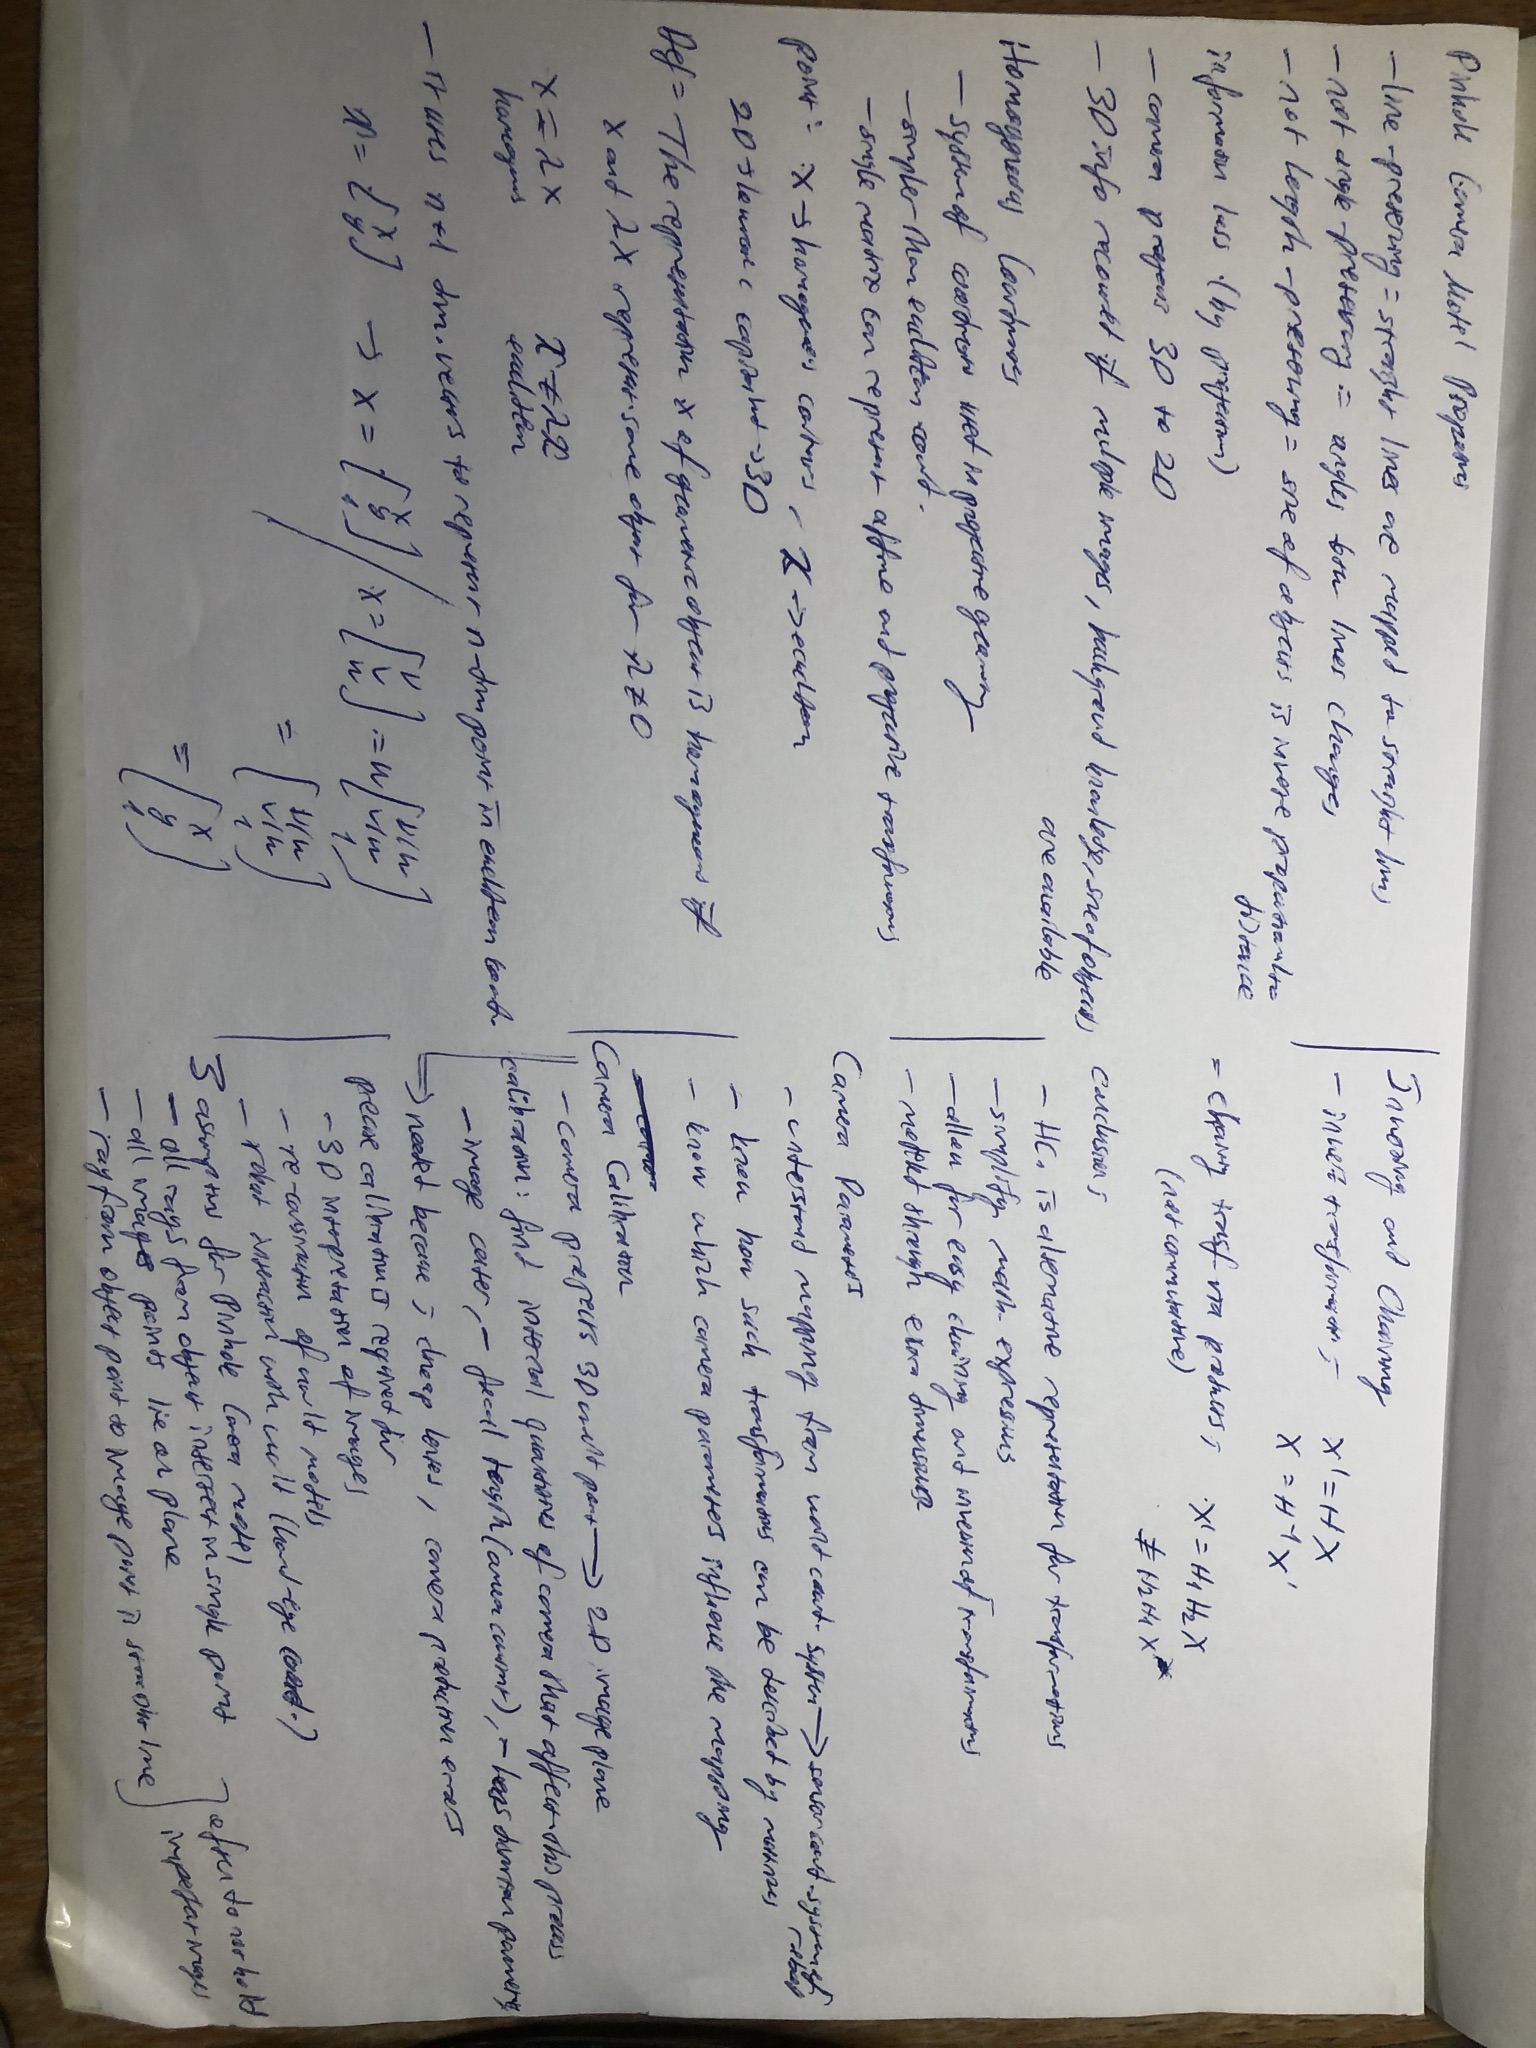 Pinhole Camera Model Properties
- line-preserving = straight lines are mapped to straight lines
- not angle-preserving = angles btw lines changes
- not length-preserving = size of objects is inverse proportional to
distance
information loss (by projection)
- camera projects 3D to 2D
- 3D info recovered if multiple images, background knowledge, size of objects
are available
Homogeneous Coordinates
- System of coordinates used in projective geometry
- simpler than euclidean coord.
- single matrix can represent affine and projective transformations
point: x → homogeneous coordinates, x → euclidean
2D → lowercase capital → 3D
Def = The representation x of geometric object is homogeneous if
x and λx represent same object for λ≠0
x = λx x ≠ λx
homogeneous euclidean
- It uses n+1 dim. vectors to represent n-dim point in euclidean coord.
x = [x y] → x = [x y 1] / x = [u v w] = w [u/w v/w 1]
= [u/w v/w 1]
= [x y 1]
Inverting and Chaining
- inverse transformation: x' = Hx
x = H⁻¹x'
= chaining transf. via products: x' = H₁H₂x
(not commutative) ≠ H₂H₁x
conclusions
- HC. is alternative representation for transformations
- simplify math. expressions
- allow for easy chaining and inversion of transformations
- modeled through extra dimension
Camera Parameters
- understand mapping from world coord. system → sensor coord. system
- know how such transformations can be described by matrices
- know which camera parameters influence the mapping
Camera Calibration
- camera projects 3D world point → 2D image plane
calibration: find internal quantities of camera that affect this process
- image center, - focal length (camera constant), - lens distortion parameters
⇒ needed because: cheap lenses, camera production errors
precise calibration is required for
- 3D interpretation of images
- re-construction of world models
- robot interaction with world (hand-eye coord.)
3 assumptions for Pinhole Camera model
- all rays from object intersect in single point
- all image points lie on plane
- ray from object point to image point is straight line
often do not hold
imperfect images